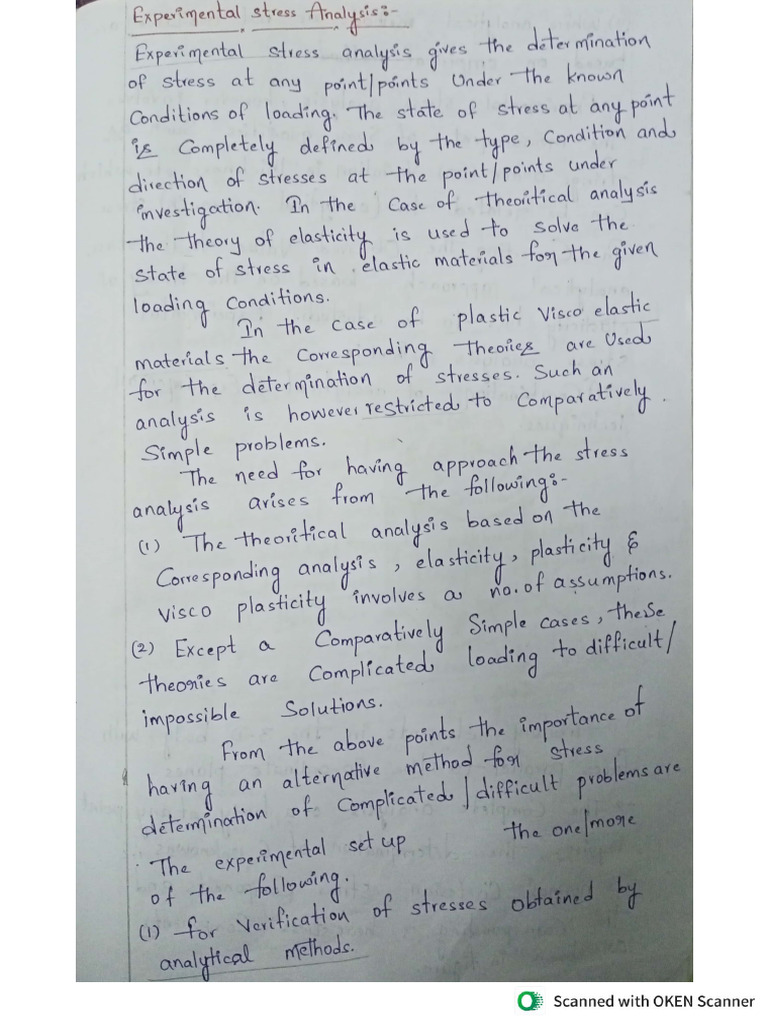 Experimental stress Analysis:-
Experimental stress analysis gives the determination
of stress at any point/points Under the known
Conditions of loading. The state of stress at any point
is Completely defined by the type, Condition and
direction of stresses at the point/points under
investigation. In the Case of theoritical analysis
the theory of elasticity is used to solve the
state of stress in elastic materials for the given
loading Conditions.
In the case of plastic Visco elastic
materials the Corresponding theories are Used
for the determination of stresses. Such an
analysis is however restricted to Comparatively
Simple problems.
The need for having approach the stress
analysis arises from the following:-
(1) The theoritical analysis based on the
Corresponding analysis, elasticity, plasticity &
Visco plasticity involves a no. of assumptions.
(2) Except a Comparatively Simple cases, these
theories are Complicated loading to difficult/
impossible Solutions.
From the above points the importance of
having an alternative method for stress
determination of Complicated/difficult problems are
The experimental set up the one/more
of the following.
(1) for Verification of stresses obtained by
analytical methods.
Scanned with OKEN Scanner